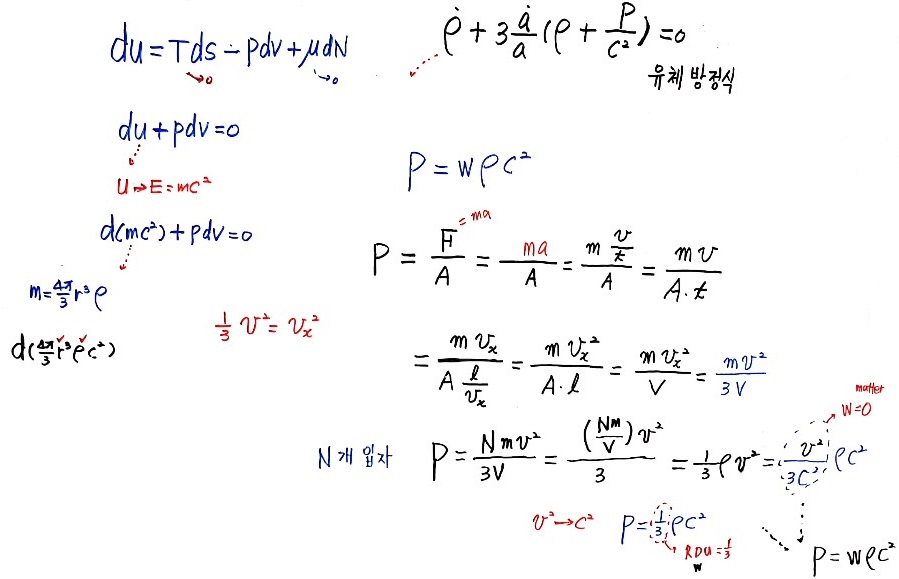 du = Tds - pdv + μdN
→0 →0
ρ̇ + 3 ȧ/a (ρ + P/c²) = 0
유체 방정식
du + pdv = 0
U ⇒ E = mc²
d(mc²) + pdv = 0
m = 4π/3 r³ ρ
d(4π/3 r³ ρ c²)
P = wρc²
P = F/A = ma/A = m v/t / A = mv/A·t
= ma
1/3 v² = vₓ²
= m vₓ / A l/vₓ = m vₓ² / A·l = m vₓ² / V = mv² / 3V
matter
W=0
N개 입자 P = Nmv²/3V = (Nm/V) v² / 3 = 1/3 ρv² = v²/3c² ρc²
v² → c² P = 1/3 ρc²
w
P = wρc²